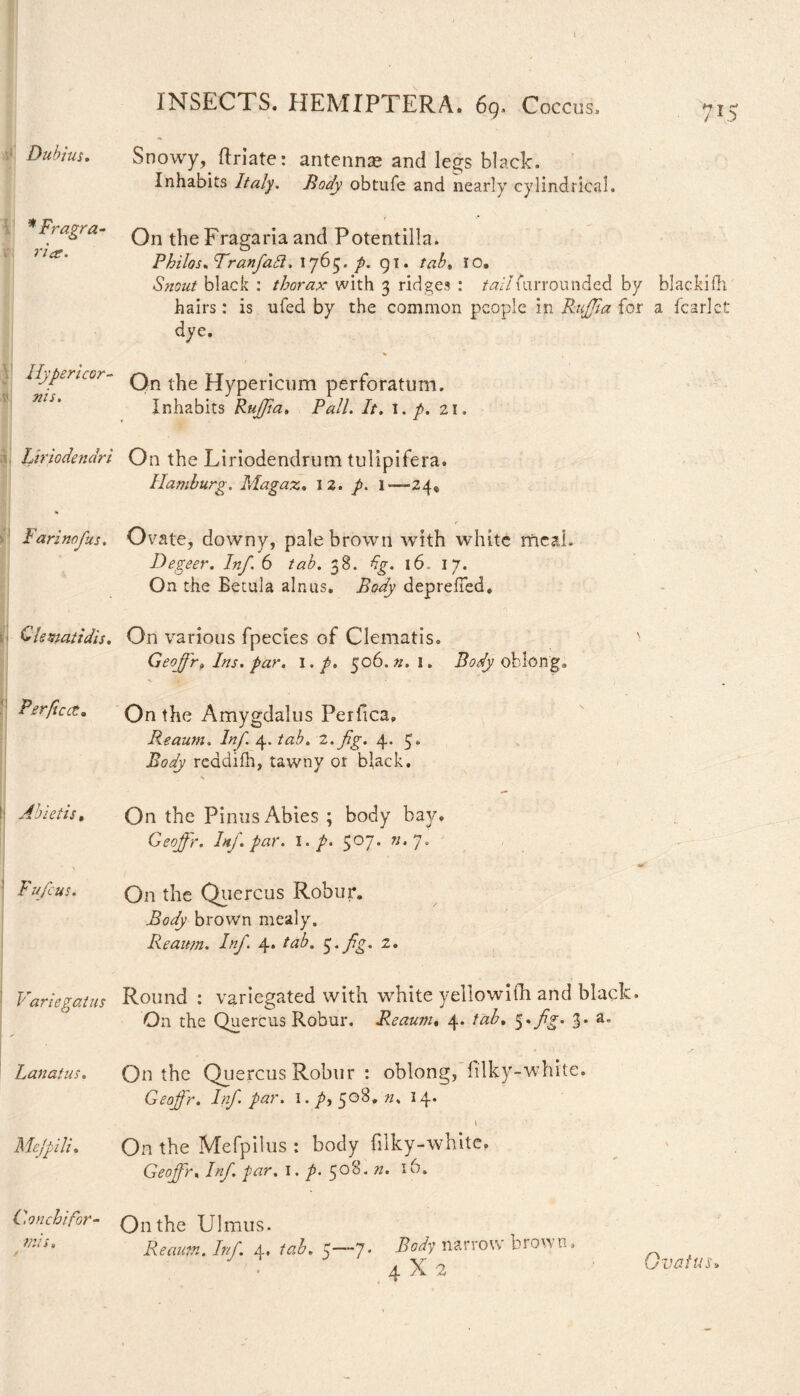 INSECTS. HEMIPTERA. 69. Coccus. 715
Dubius. Snowy, ſtriate: antennæ and legs black.
Inhabits Italy. Body obtuſe and nearly cylindrical.
* Fragra- On the Fragaria and Potentilla.
riæ. Philos. Tranſact. 1765. p. 91. tab. 10.
Snout black : thorax with 3 ridges : tail ſurrounded by blackiſh
hairs : is uſed by the common people in Ruſſia for a ſcarlet
dye.
Hypericor- On the Hypericum perforatum.
nis. Inhabits Ruſſia. Pall. It. 1. p. 21.
Liriodendri On the Liriodendrum tulipifera.
Hamburg. Magaz. 12. p. 1—24.
Farinoſus. Ovate, downy, pale brown with white meal.
Degeer. Inſ. 6 tab. 38. fig. 16. 17.
On the Betula alnus. Body depreſſed.
Clematidis. On various ſpecies of Clematis.
Geoffr. Ins. par. 1. p. 506. n. 1. Body oblong.
Perſicæ. On the Amygdalus Perſica.
Reaum. Inſ. 4. tab. 2. fig. 4. 5.
Body reddiſh, tawny or black.
Abietis. On the Pinus Abies ; body bay.
Geoffr. Inſ. par. 1. p. 507. n. 7.
Fuſcus. On the Quercus Robur.
Body brown mealy.
Reaum. Inſ. 4. tab. 5. fig. 2.
Variegatus Round : variegated with white yellowiſh and black.
On the Quercus Robur. Reaum. 4. tab. 5. fig. 3. a.
Lanatus. On the Quercus Robur : oblong, ſilky-white.
Geoffr. Inſ. par. 1. p, 508. n. 14.
Meſpili. On the Meſpilus : body ſilky-white.
Geoffr. Inſ. par. 1. p. 508. n. 16.
Conchifor- On the Ulmus.
mis. Reaum. Inſ. 4. tab. 5—7. Body narrow brown.
4 X 2 Ovatus.